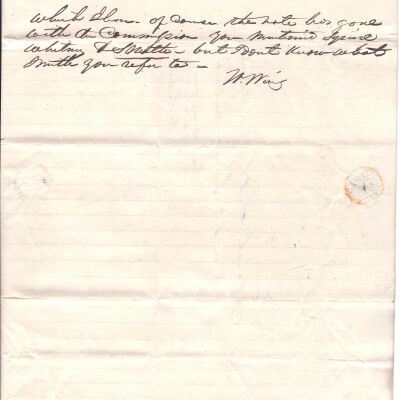 which I have. of course the note has gone
with the Commission you mentioned Squire
Whitney & Smith. but I dont know what
Smith you refer to –
W. Wing